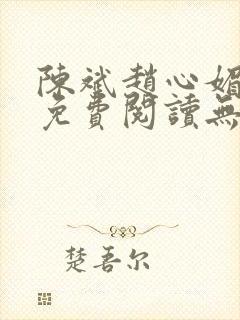 陳斌趙心媚
免費閱讀無
楚吾尔